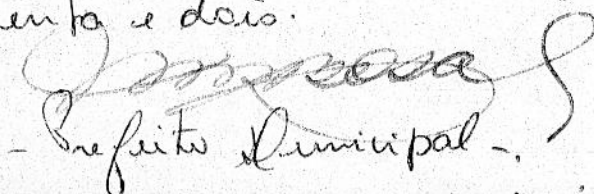 enta e dois.
- Prefeito Municipal -.